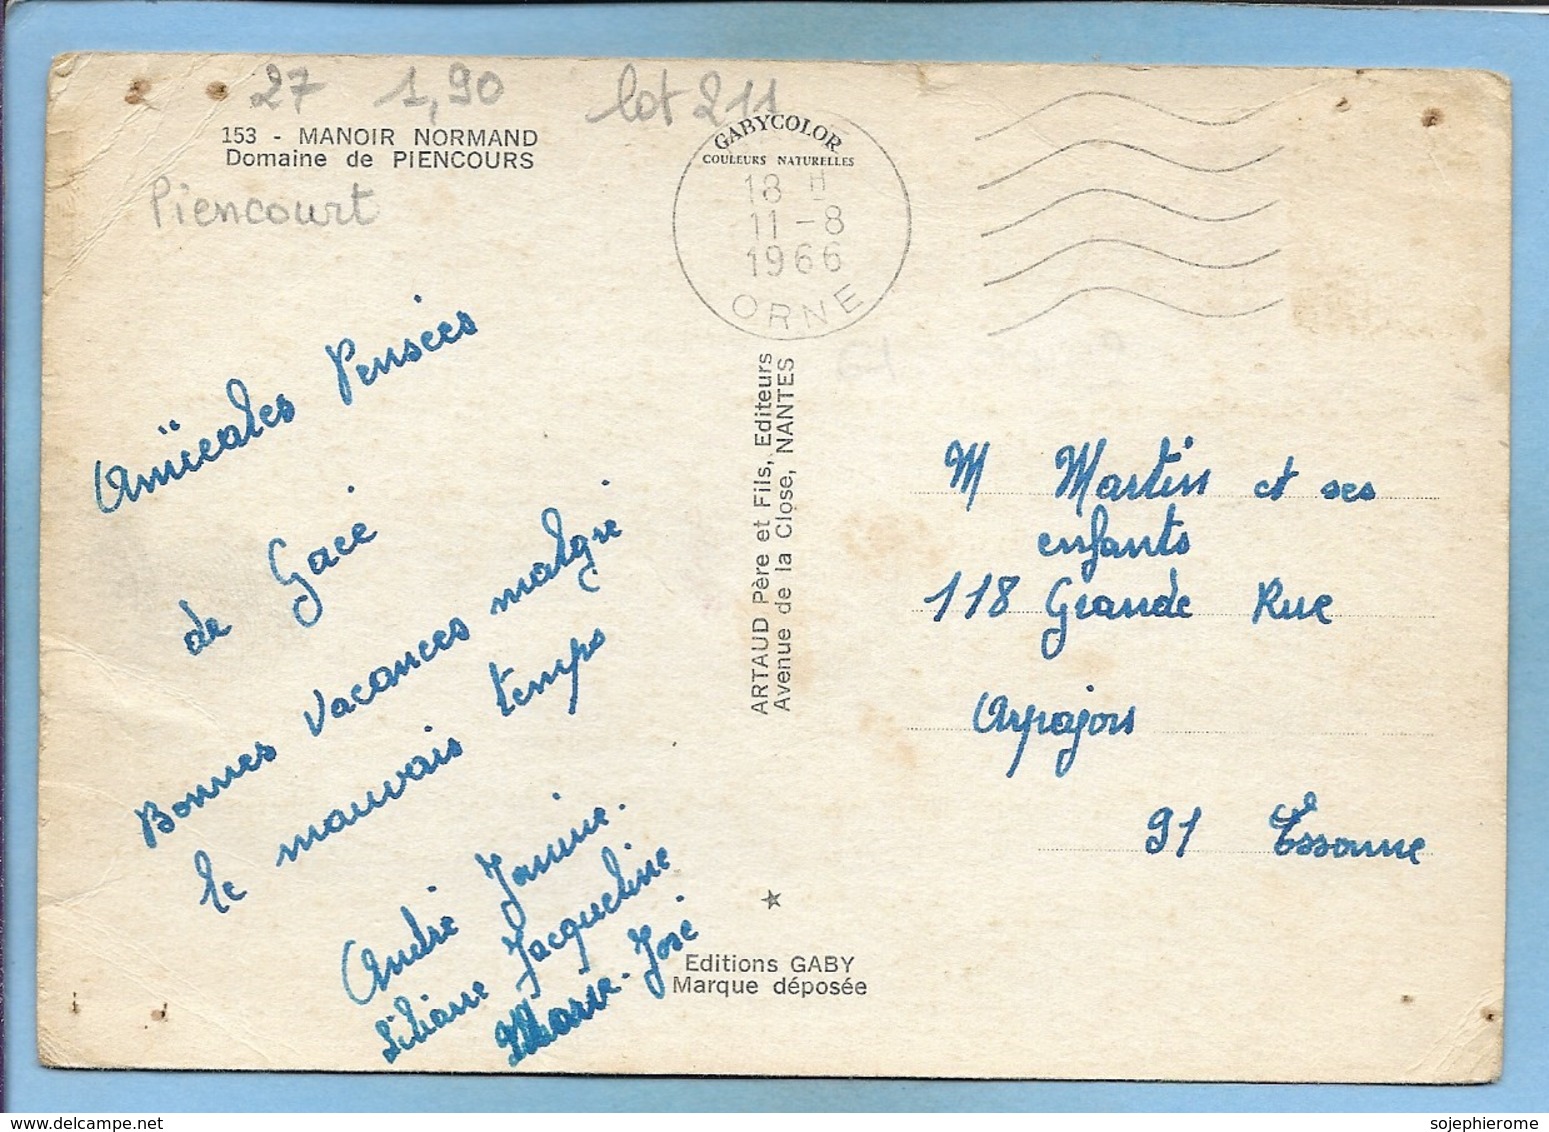 27 1,90 lot 211
153 - MANOIR NORMAND
Domaine de PIENCOURS
Piencourt
GABYCOLOR
COULEURS NATURELLES
18 H
11-8
1966
ORNE
Amicales Pensées
de Gacé
Bonnes Vacances malgré
le mauvais temps
André Janine.
Liliane Jacqueline
Marie-José
ARTAUD Père et Fils, Editeurs
Avenue de la Close, NANTES
Editions GABY
Marque déposée
M Martin et ses
enfants
118 Grande Rue
Arpajon
91 Essonne
sojephierome